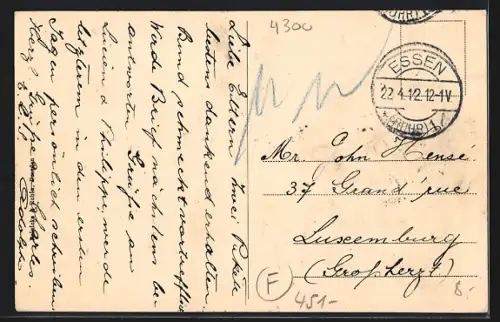 4300
ESSEN
22.4.12.12-1V
*(RUHR)1
(RUHR)1
Liebe Eltern! Zwei Pakete
bestens dankend erhalten.
Bund schmeckt vortrefflich
Werde Brief nächstens be-
antworten. Grüße an
Lucien & Philipp, werde
letzterem in den ersten
Tagen persönlich schreiben
Herzl. Grüße Charles.
Adolphe
Mr. John Hensé
37 Grand' rue
Luxemburg
(Großherzt)
F
451-
8.-